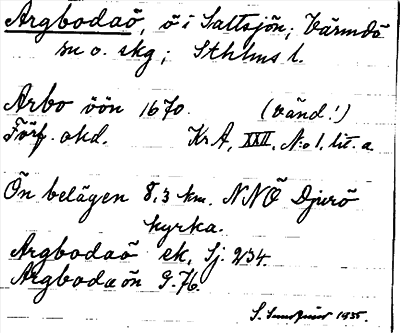 Argbodaö, ö i Saltsjön; Värmdö
sn o. skg; Sthlms l.
Arbo öön 1670. (vänd!)
Förf. okd. KrA, XXII, N:o 1, lit. a
Ön belägen 8,3 km. NNÖ Djurö
kyrka.
Argbodaö ek. Sj. 234.
Argbodaön G. 76.
S. 1935.